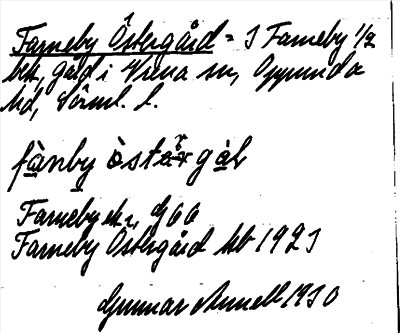 Farneby Östergård = I Farneby 1/2
bek, gård i Vrena sn, Oppunda
hd, Sörml. l.
fànby òstərgàḷ
Farneby ek 2, G 6 6
Farneby Östergård kb 1921
Gunnar Arnell 1930